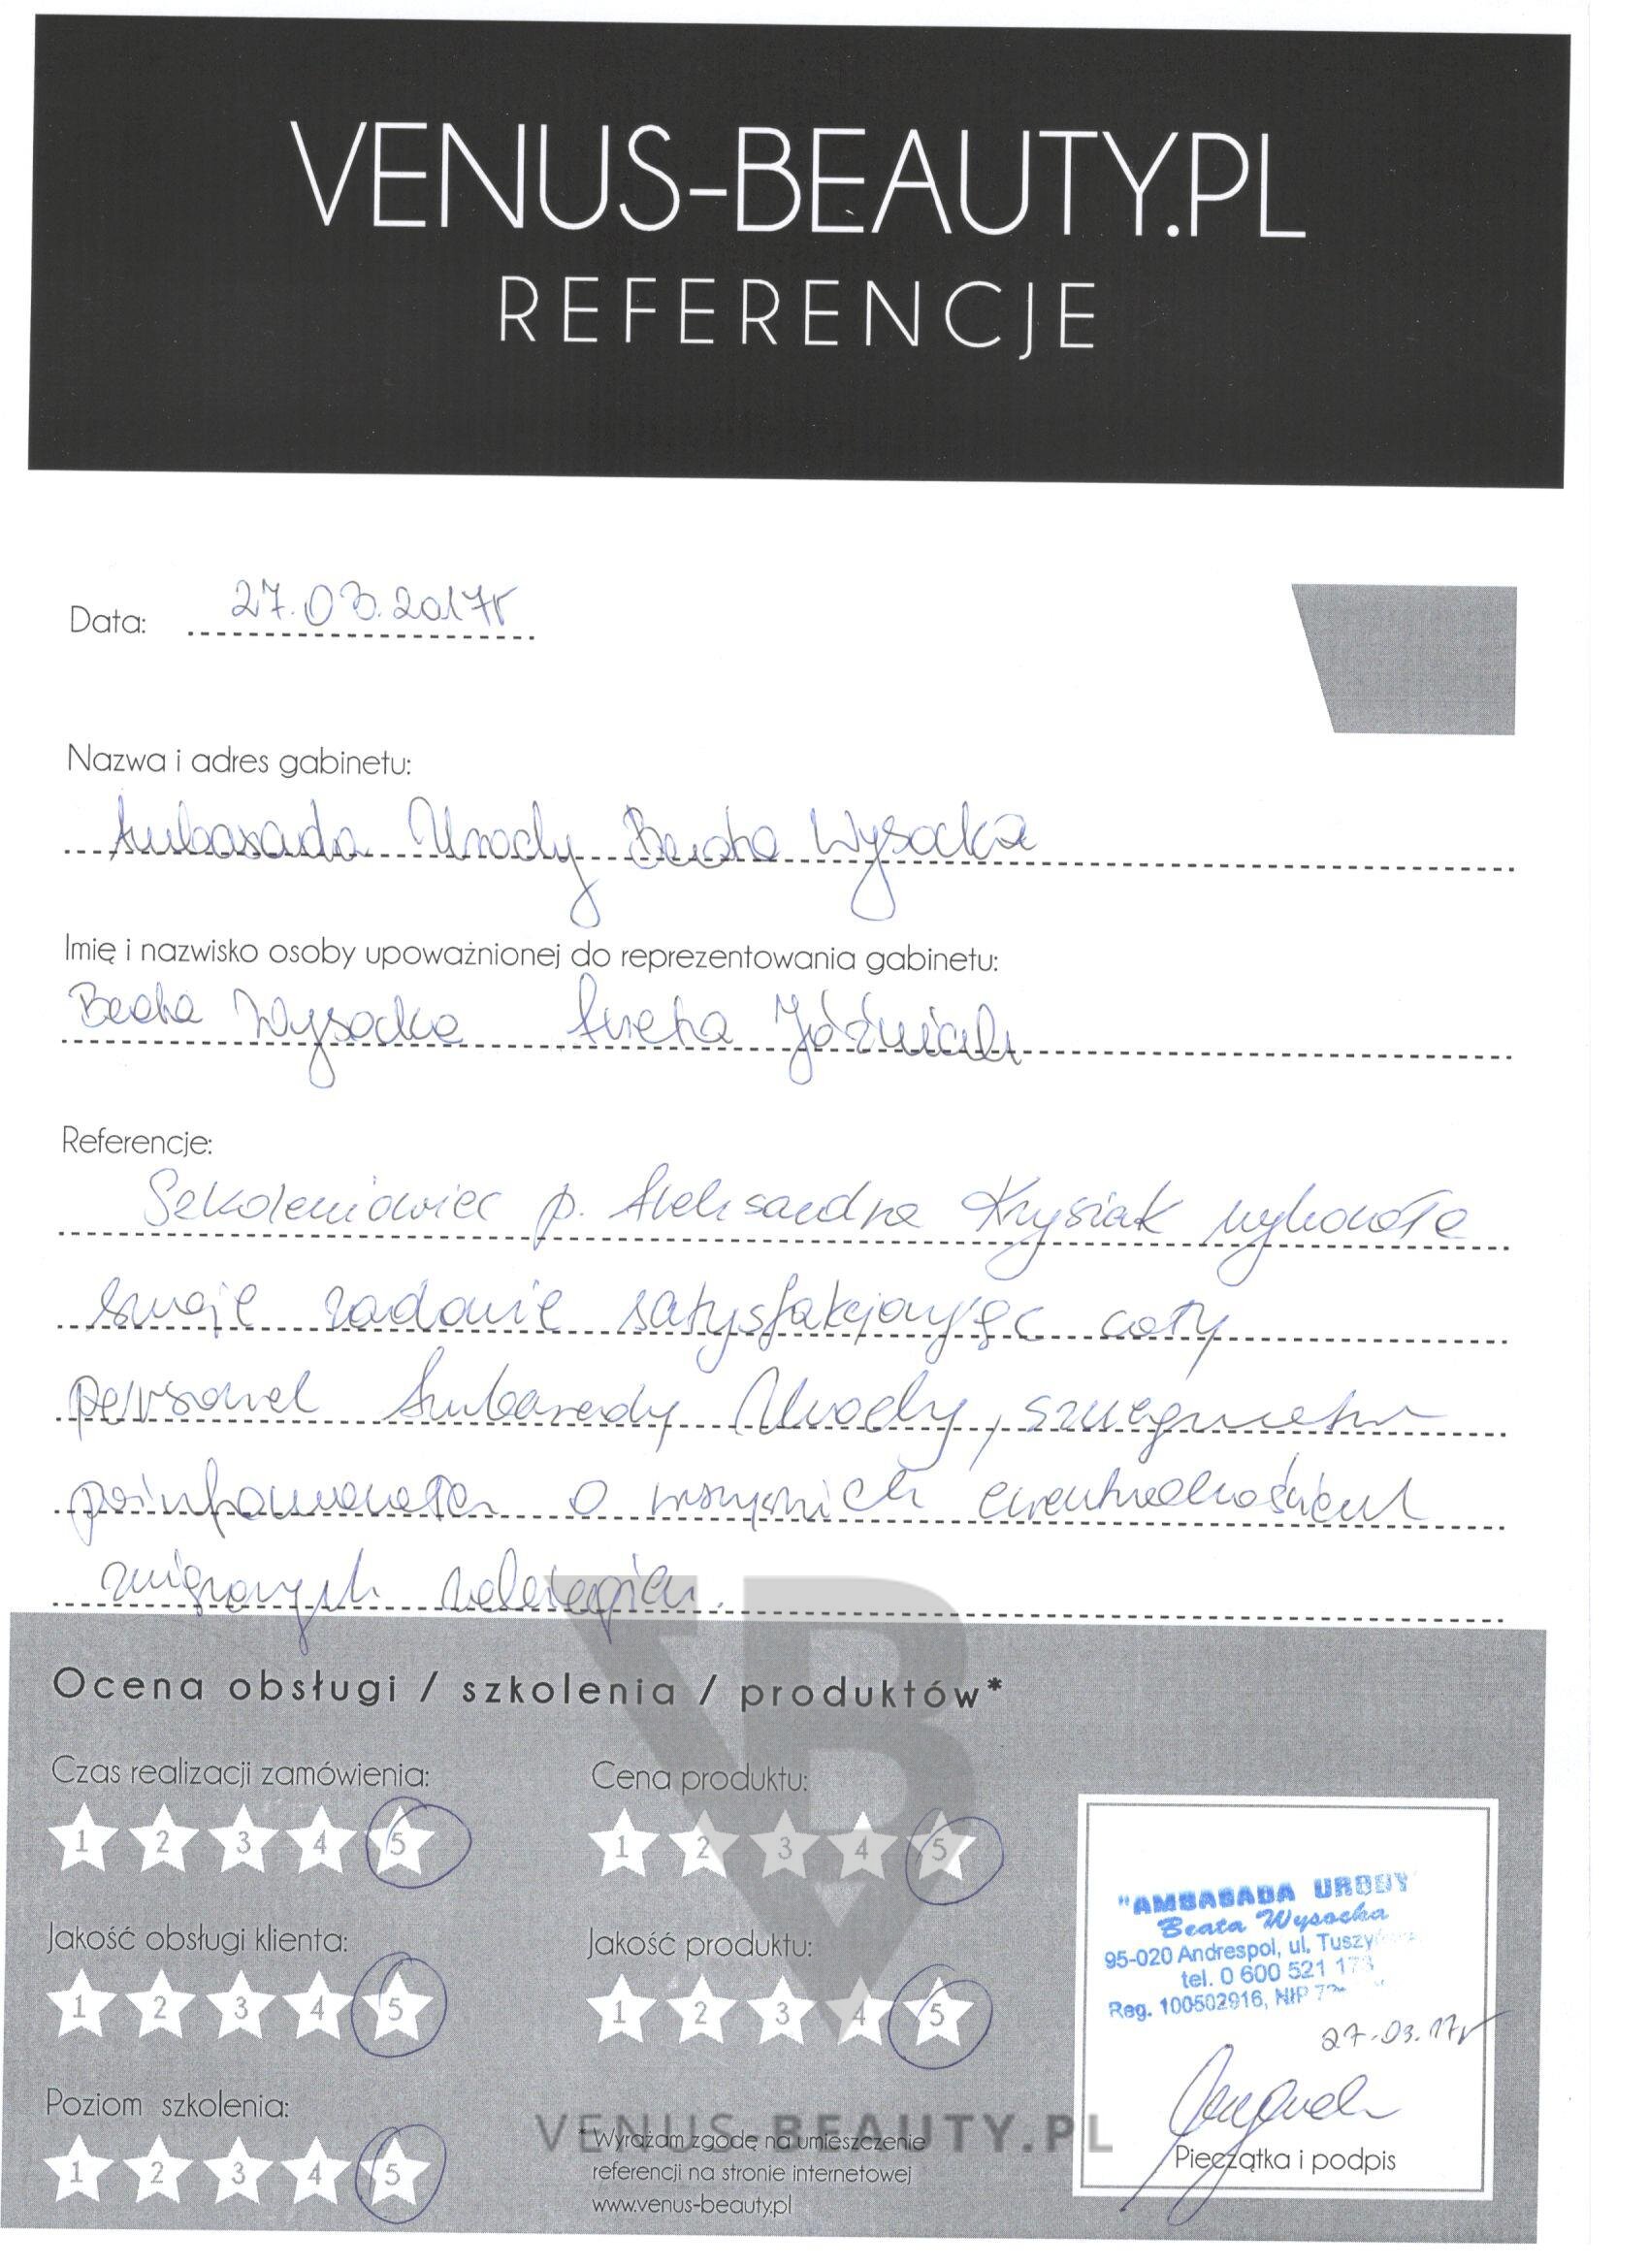 VENUS-BEAUTY.PL
REFERENCJE
Data: 27.03.2017r
Nazwa i adres gabinetu:
Ambasada Urody Beata Wysocka
Imię i nazwisko osoby upoważnionej do reprezentowania gabinetu:
Beata Wysocka Aneta Jóźwiak
Referencje:
Szkoleniowiec p. Aleksandra Krysiak wykonała
swoje zadanie satysfakcjonując cały
personel Ambasady Urody,
poinformowała o wszystkich ewentualnościach
Ocena obsługi / szkolenia / produktów*
Czas realizacji zamówienia:
1 2 3 4 5
Cena produktu:
1 2 3 4 5
Jakość obsługi klienta:
1 2 3 4 5
Jakość produktu:
1 2 3 4 5
Poziom szkolenia:
1 2 3 4 5
VENUS-BEAUTY.PL
*Wyrażam zgodę na umieszczenie
referencji na stronie internetowej
www.venus-beauty.pl
"AMBASADA URODY"
Beata Wysocka
95-020 Andrespol, ul.
tel. 0 600 521
Reg. 100502916, NIP
27.03.17r
Pieczątka i podpis